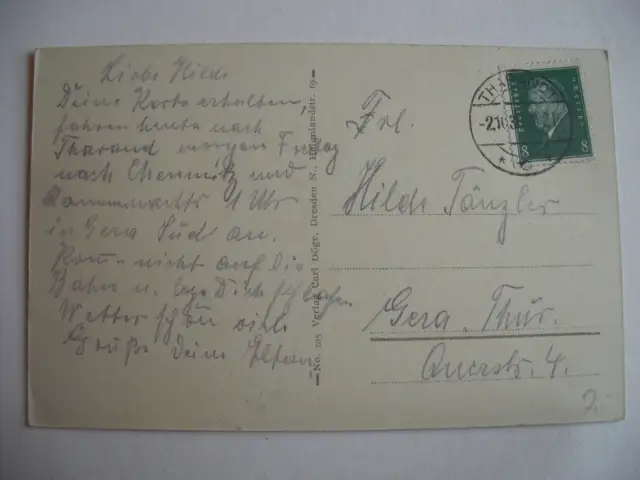 Liebe Hilde
Deine Karte erhalten,
fahren heute nach
Tharand morgen Freitag
nach Chemnitz und
kommen nachts 1 Uhr
in Gera Süd an.
Komm nicht auf die
Bahn u. lege Dich schlafen
Wetter schön viele
Grüße Deine Eltern
No. 205 Verlag Carl Döge, Dresden N., Helgolandstr. 19
8 8
Frl.
Hilde Tänzler
Gera, Thür.
Auerstr. 4.
2.-